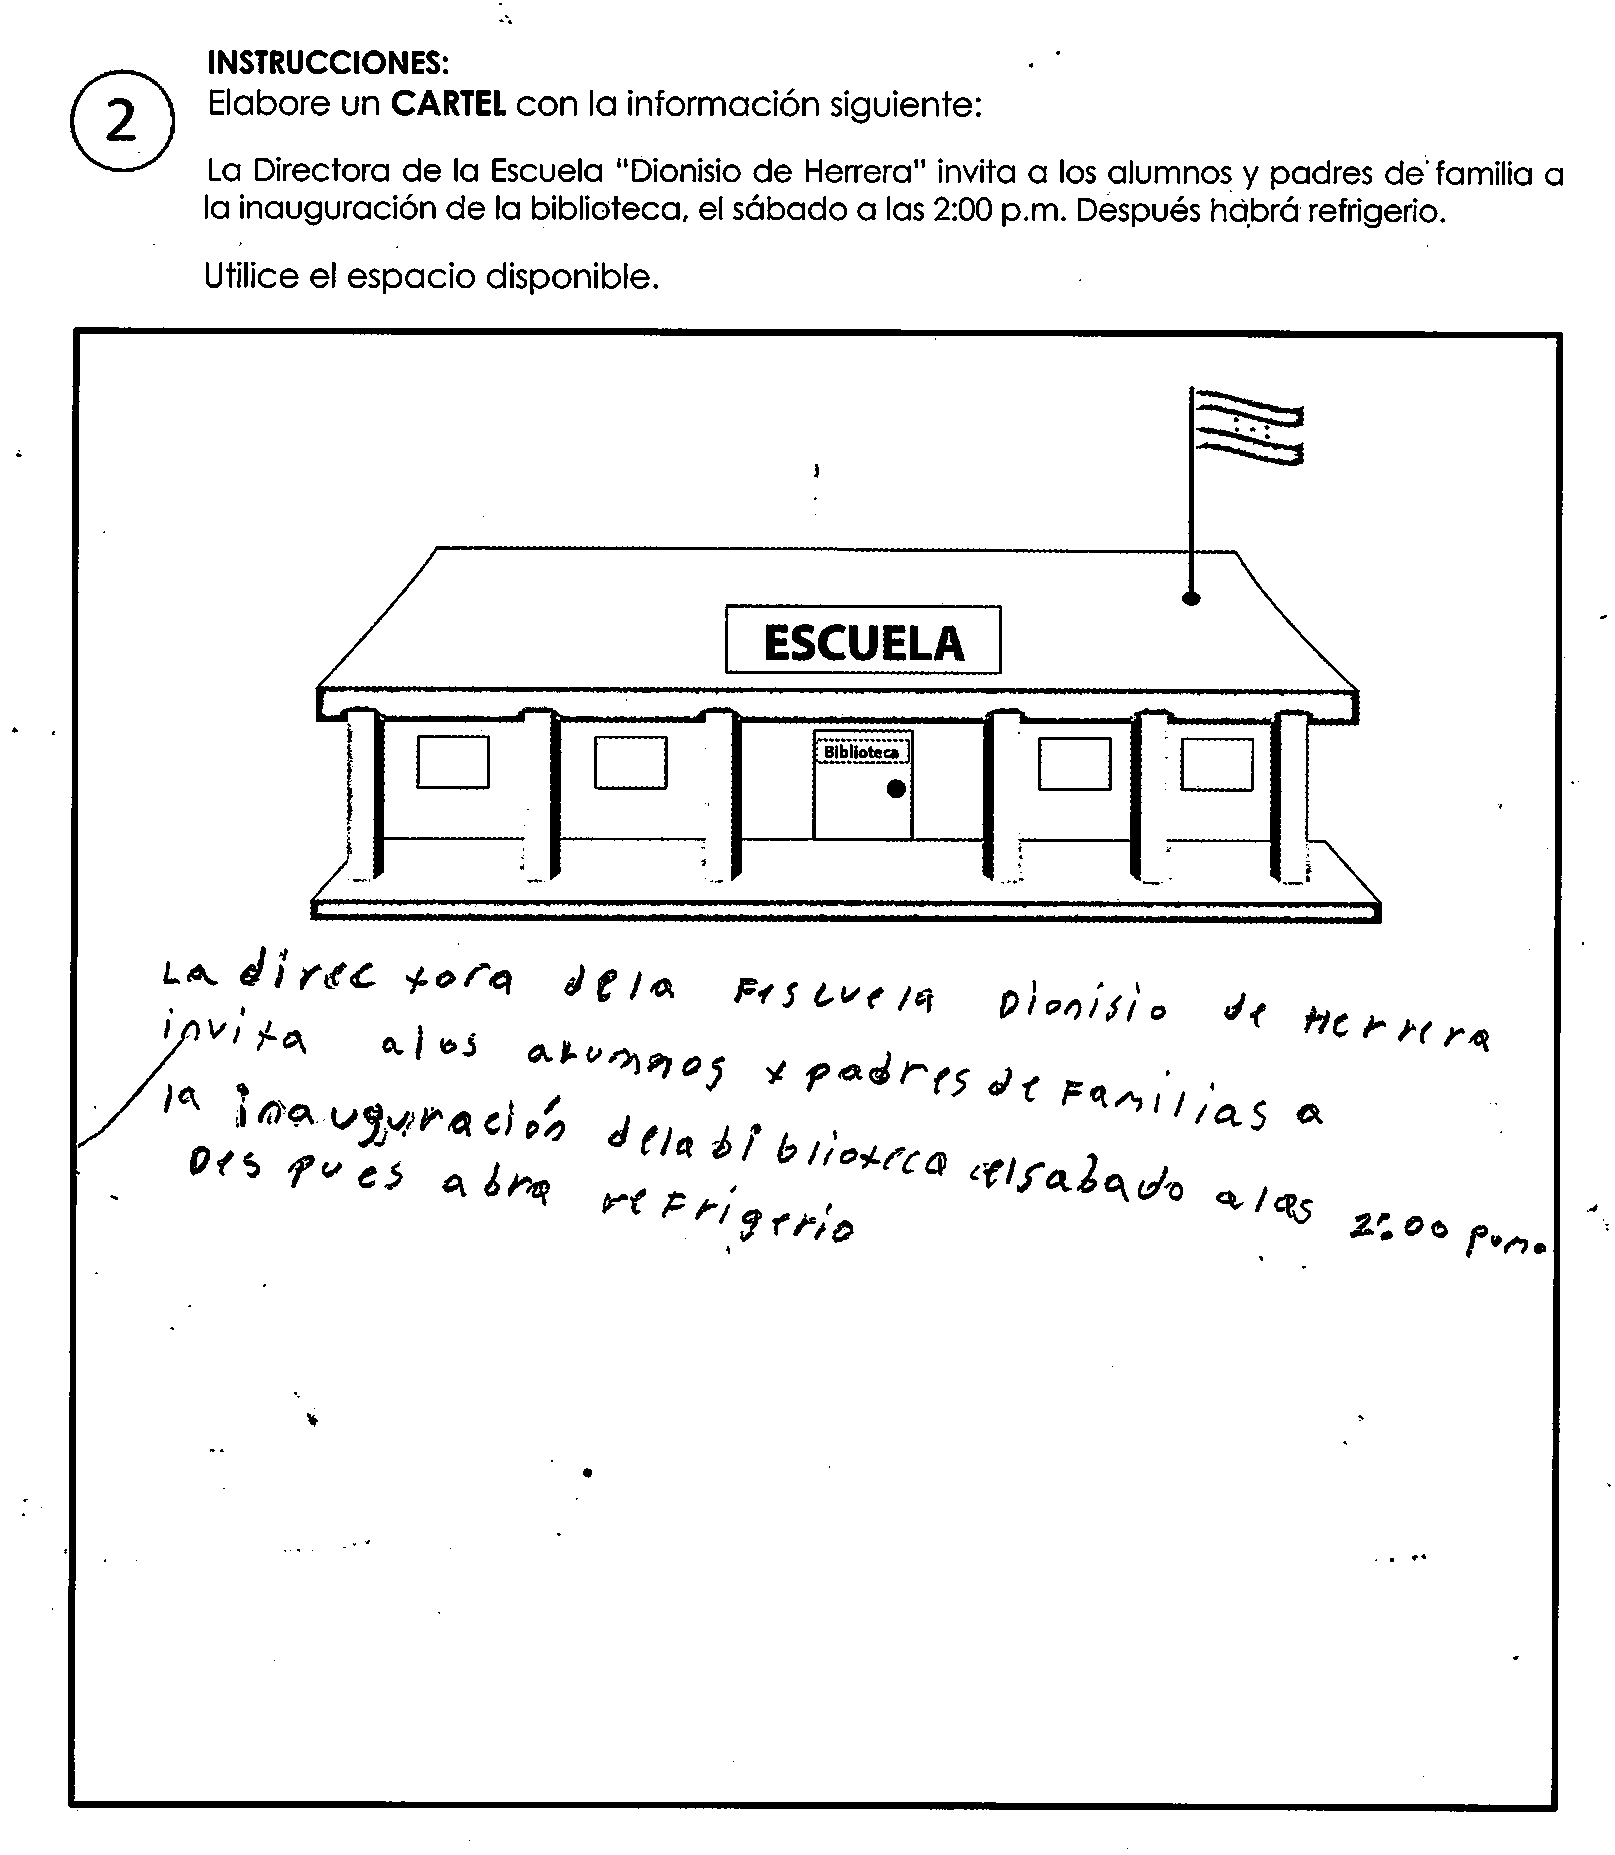 INSTRUCCIONES:
2
Elabore un CARTEL con la información siguiente:
La Directora de la Escuela "Dionisio de Herrera" invita a los alumnos y padres de familia a
la inauguración de la biblioteca, el sábado a las 2:00 p.m. Después habrá refrigerio.
Utilice el espacio disponible.
ESCUELA
Biblioteca
La direc tora dela Eescuela Dionisio de Herrera
invita alos alumnos y padres de Familias a
la inauguración dela bi blioteca elsabado alas 2:00 p.m.
Des pues abra reFrigerio